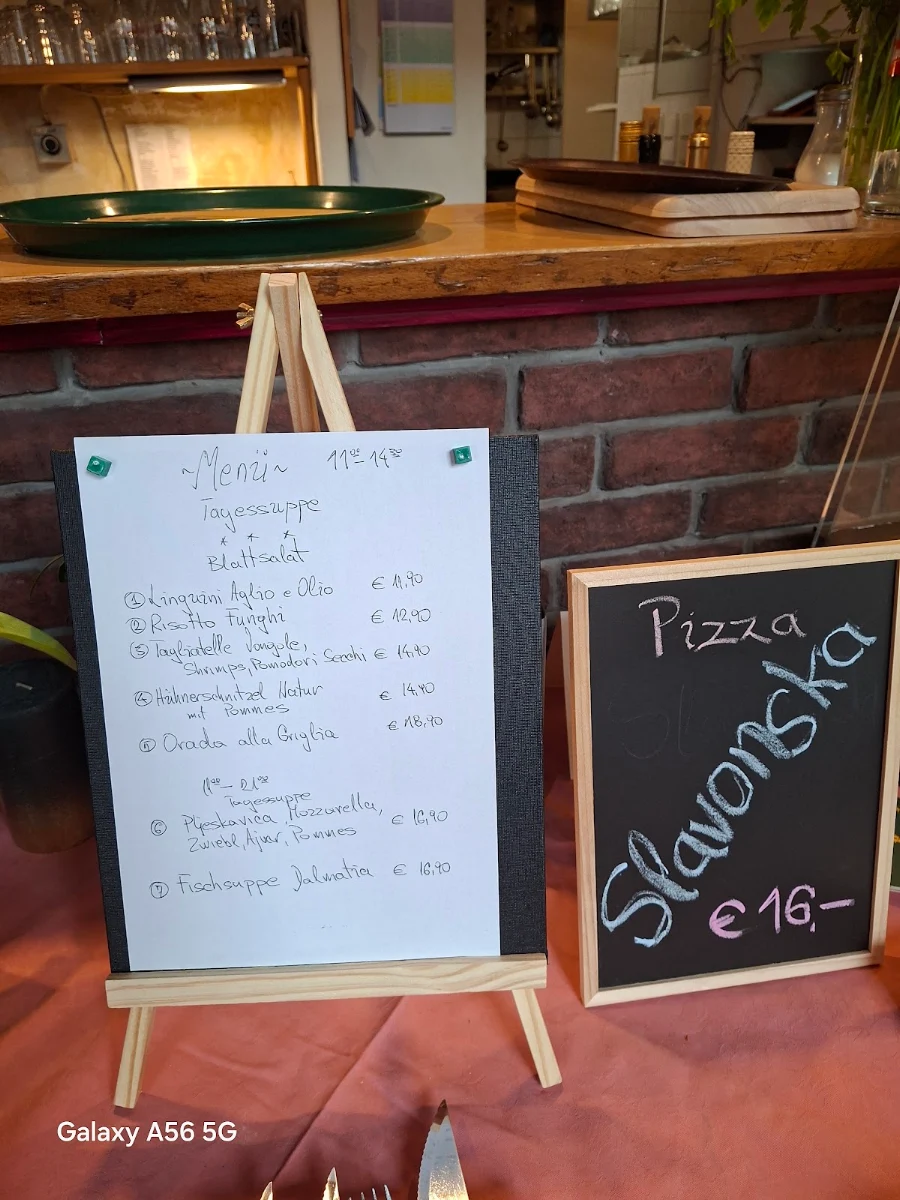 ~Menü~ 11⁰⁰-14³⁰
Tagessuppe
* * *
Blattsalat
① Linguini Aglio e Olio € 11,90
② Risotto Funghi € 12,90
③ Tagliatelle Vongole,
Shrimps, Pomodori Secchi € 14,90
④ Hühnerschnitzel Natur € 14,90
mit Pommes
⑤ Orada alla Griglia € 18,90
11⁰⁰-21⁰⁰
Tagessuppe
⑥ Pljeskavica Mozzarella,
Zwiebl, Ajvar, Pommes € 16,90
⑦ Fischsuppe Dalmatia € 16,90
Pizza
Slavonska
€ 16,-
Galaxy A56 5G